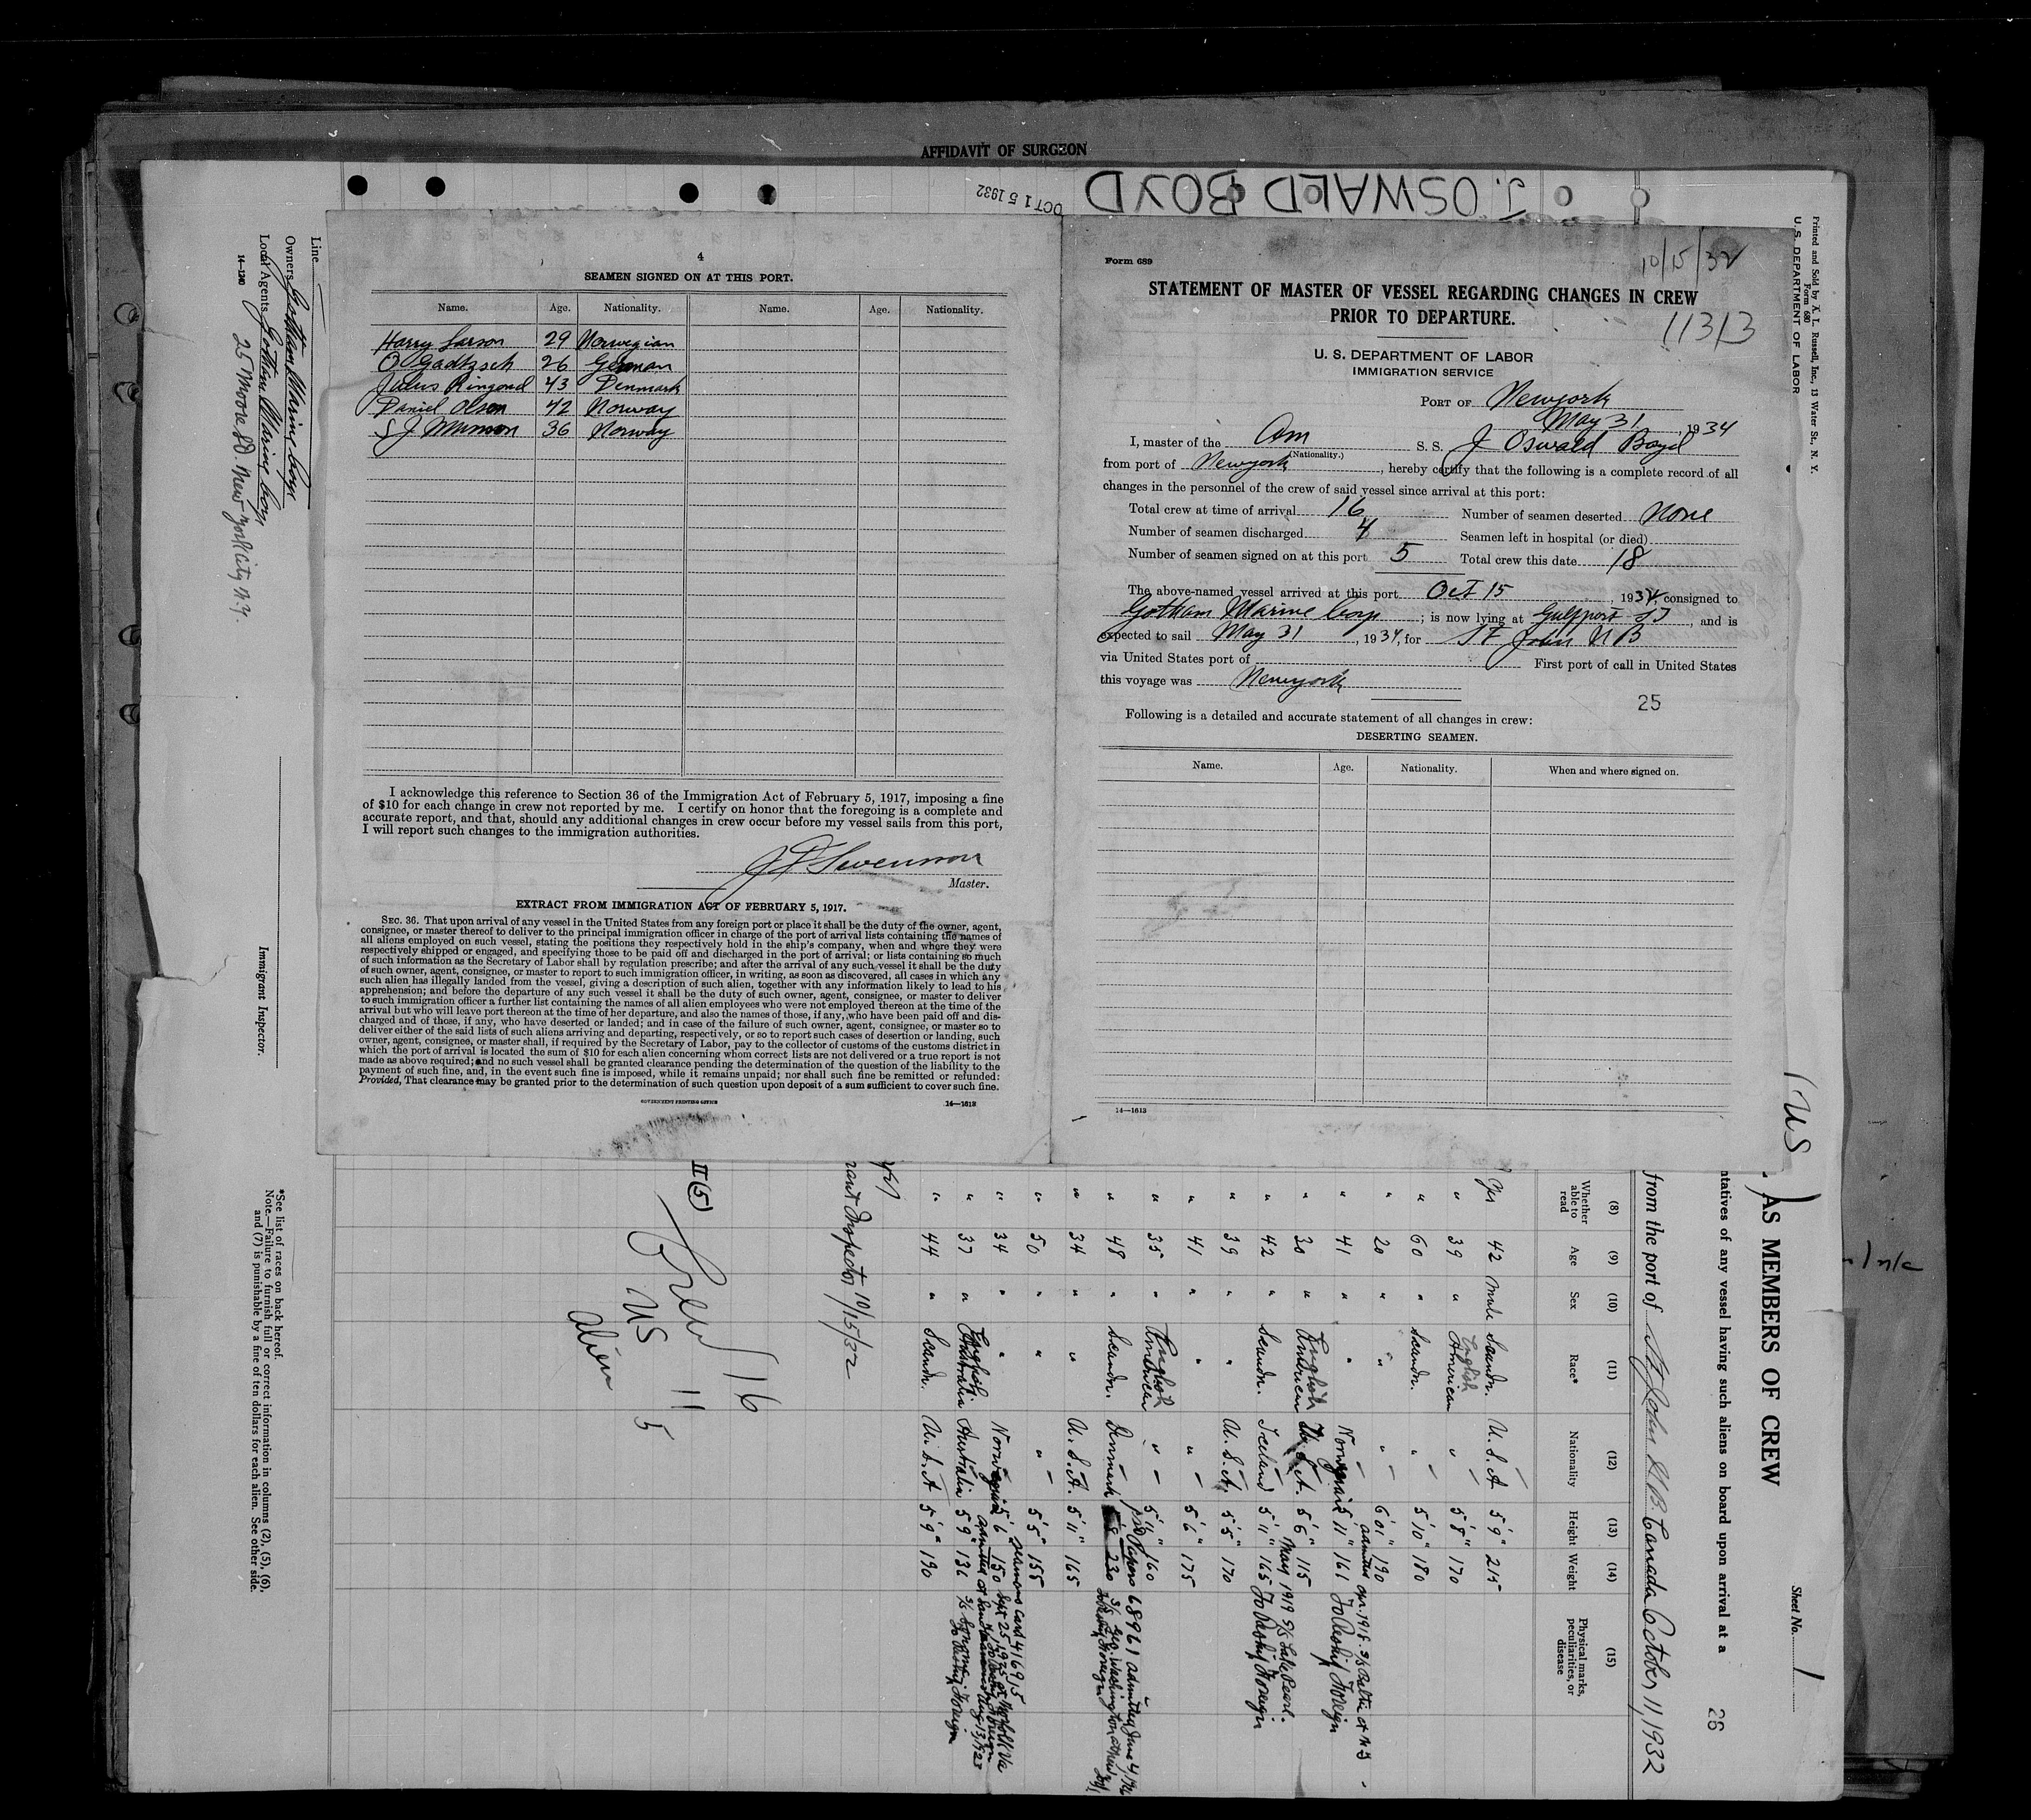 AFFIDAVIT OF SURGEON
J. OSWALD BOYD
OCT 15 1932
4
SEAMEN SIGNED ON AT THIS PORT.
Name. Age. Nationality. Name. Age. Nationality.
Harry Larson 29 Norwegian
O Gadtzsch 26 German
Julius Ringond 43 Denmark
Daniel Olsen 42 Norway
S J 36 Norway
I acknowledge this reference to Section 36 of the Immigration Act of February 5, 1917, imposing a fine
of $10 for each change in crew not reported by me. I certify on honor that the foregoing is a complete and
accurate report, and that, should any additional changes in crew occur before my vessel sails from this port,
I will report such changes to the immigration authorities.
Master.
EXTRACT FROM IMMIGRATION ACT OF FEBRUARY 5, 1917.
SEC. 36. That upon arrival of any vessel in the United States from any foreign port or place it shall be the duty of the owner, agent,
consignee, or master thereof to deliver to the principal immigration officer in charge of the port of arrival lists containing the names of
all aliens employed on such vessel, stating the positions they respectively hold in the ship's company, when and where they were
respectively shipped or engaged, and specifying those to be paid off and discharged in the port of arrival; or lists containing so much
of such information as the Secretary of Labor shall by regulation prescribe; and after the arrival of any such vessel it shall be the duty
of such owner, agent, consignee, or master to report to such immigration officer, in writing, as soon as discovered, all cases in which any
such alien has illegally landed from the vessel, giving a description of such alien, together with any information likely to lead to his
apprehension; and before the departure of any such vessel it shall be the duty of such owner, agent, consignee, or master to deliver
to such immigration officer a further list containing the names of all alien employees who were not employed thereon at the time of the
arrival but who will leave port thereon at the time of her departure, and also the names of those, if any, who have been paid off and dis-
charged and of those, if any, who have deserted or landed; and in case of the failure of such owner, agent, consignee, or master so to
deliver either of the said lists of such aliens arriving and departing, respectively, or so to report such cases of desertion or landing, such
owner, agent, consignee, or master shall, if required by the Secretary of Labor, pay to the collector of customs of the customs district in
which the port of arrival is located the sum of $10 for each alien concerning whom correct lists are not delivered or a true report is not
made as above required; and no such vessel shall be granted clearance pending the determination of the question of the liability to the
payment of such fine, and, in the event such fine is imposed, while it remains unpaid; nor shall such fine be remitted or refunded:
Provided, That clearance may be granted prior to the determination of such question upon deposit of a sum sufficient to cover such fine.
GOVERNMENT PRINTING OFFICE 14—1613
Form 689
10/15/32
STATEMENT OF MASTER OF VESSEL REGARDING CHANGES IN CREW
PRIOR TO DEPARTURE.
11313
U. S. DEPARTMENT OF LABOR
IMMIGRATION SERVICE
PORT OF Newyork
May 31, 1934
I, master of the Am S. S. J Oswald Boyd
(Nationality.)
from port of Newyork, hereby certify that the following is a complete record of all
changes in the personnel of the crew of said vessel since arrival at this port:
Total crew at time of arrival 16 Number of seamen deserted None
Number of seamen discharged 4 Seamen left in hospital (or died)
Number of seamen signed on at this port 5 Total crew this date 18
The above-named vessel arrived at this port Oct 15, 1932, consigned to
Gotham Marine Corp; is now lying at Gulfport SI, and is
expected to sail May 31, 1934, for St John N B
via United States port of First port of call in United States
this voyage was Newyork
25
Following is a detailed and accurate statement of all changes in crew:
DESERTING SEAMEN.
Name. Age. Nationality. When and where signed on.
14—1613
Printed and Sold by A. L. Russell, Inc., 13 Water St., N. Y.
Form 680
U. S. DEPARTMENT OF LABOR
(US)
AS MEMBERS OF CREW
Sheet No. 1
ntatives of any vessel having such aliens on board upon arrival at a
26
from the port of St John N.B. Canada October 11, 1932
(8) (9) (10) (11) (12) (13) (14) (15)
Whether able to read Age Sex Race* Nationality Height Weight Physical marks, peculiarities, or disease
Yes 42 male Scandn. U. S. A 5'9" 215
" 39 " English American " 5'8" 170
" 60 " Scandn. " 5'10" 180
" 20 " " " 6'01" 190
" 41 " " Norwegian 5'11" 161 To Reship Foreign
" 30 " English American U. S. A. 5'6" 115
" 42 " Scandn. Iceland 5'11" 165 To Reship Foreign
" 39 " " U. S. A. 5'5" 170
" 41 " " " 5'6" 175
" 35 " English American " 5'11" 160
" 48 " Scandn. Denmark 230
" 34 " " U. S. A. 5'11" 165
" 50 " " " 5'5" 155
" 34 " " Norwegian 5'6" 150
" 37 " English Australia Australia 5'9" 136
" 44 " Scandn. U. S. A 5'9" 190
rant Inspector 10/15/32
II (5)
Crew 16
US 11
Alien 5
Line
Owners Gotham Marine Corp
Local Agents Gotham Marine Corp
25 Moore St. New York City N.Y.
14—1240
Immigrant Inspector.
*See list of races on back hereof.
Note.—Failure to furnish full or correct information in columns (2), (5), (6),
and (7) is punishable by a fine of ten dollars for each alien. See other side.